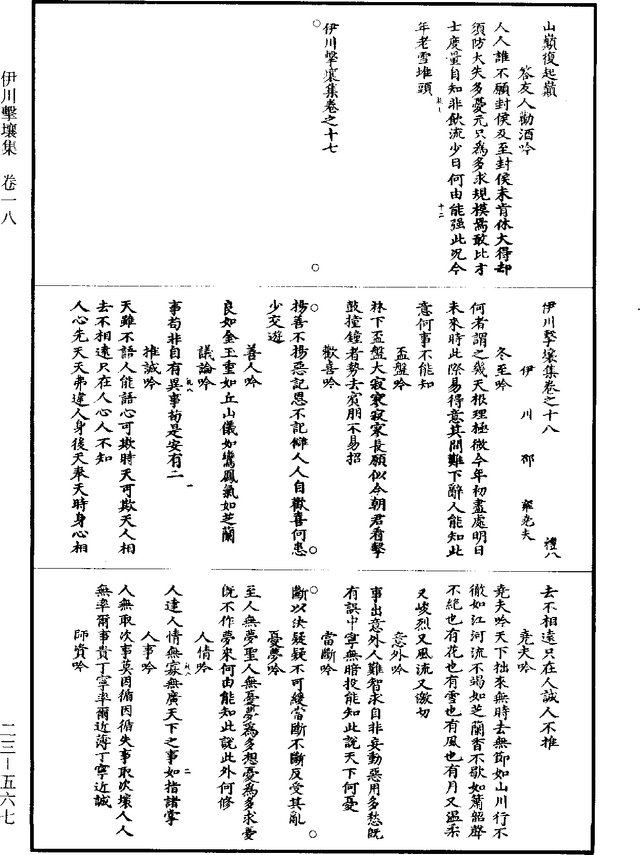 山巔復起巔
答友人勸酒吟
人人誰不願封侯及至封侯未肯休大得却
須防大失多憂元只為多求規模焉敢比才
士度量自知非飲流少日何由能强此況今
年老雪堆頭
伊川擊壤集卷之十七
伊川擊壤集卷之十八
伊川邵雍堯夫
冬至吟
何者謂之幾天根理極微今年初盡處明日
未來時此際易得意其間難下辭人能知此
意何事不能知
盃盤吟
林下盃盤大寂寥寂寥長願似今朝君看擊
鼓撞鐘者勢去賓朋不易招
歡喜吟
揚善不揚惡記恩不記讎人人自歡喜何患
少交遊
善人吟
良如金玉重如丘山儀如鸞鳳氣如芝蘭
議論吟
事苟非自有異事苟是安有二
推誠吟
天雖不語人能語心可欺時天可欺天人相
去不相遠只在人心人不知
人心先天天弗違人身後天奉天時身心相
去不相遠只在人誠人不推
堯夫吟
堯夫吟天下拙來無時去無節如山川行不
徹如江河流不竭如芝蘭香不歇如簫韶聲
不絕也有花也有雪也有風也有月又溫柔
又峻烈又風流又激切
意外吟
事出意外人難智求自非妄動惡用多愁既
有誤中寧無暗投能知此說天下何憂
當斷吟
斷以決疑疑不可緩當斷不斷反受其亂
憂夢吟
至人無夢聖人無憂夢為多想憂為多求憂
既不作夢來何由能知此說此外何修
人情吟
人達人情無寡無廣天下之事如指諸掌
人事吟
人無取次事莫因循因循失事取次壞人人
無率爾事貴丁寧率爾近薄丁寧近誠
師資吟
伊川擊壤集 卷一八
二三—五六七